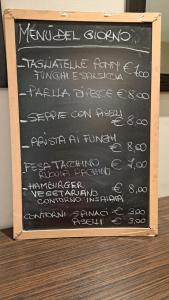 MENÙ DEL GIORNO
-TAGLIATELLE
FUNGHI E SALSICCIA € 7,00
€ 8,00
-SEPPIE CON PISELLI
€ 8,00
-ARISTA AI FUNGHI
€ 8,00
-FESA TACCHINO € 7,00
RUCOLA PACHINO
-HAMBURGER € 8,00
VEGETARIANO
CONTORNO INSALATA
CONTORNI SPINACI € 3,00
PISELLI € 3,00